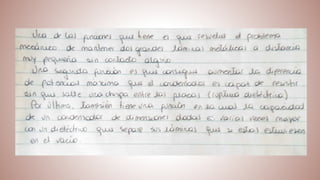 Una de las funciones que tiene es que resuelve el problema
mecánico de mantener dos grandes láminas metálicas a distancia
muy pequeña sin contacto alguno
Una segunda función es que consigue aumentar la diferencia
de potencial máxima que el condensador es capaz de resistir
sin que salte una chispa entre las placas (ruptura dieléctrica).
Por último, también tiene una función en la cual la capacidad
de un condensador de dimensiones dadas es varias veces mayor
con un dieléctrico que separe sus láminas que si estas estuviesen
en el vacío